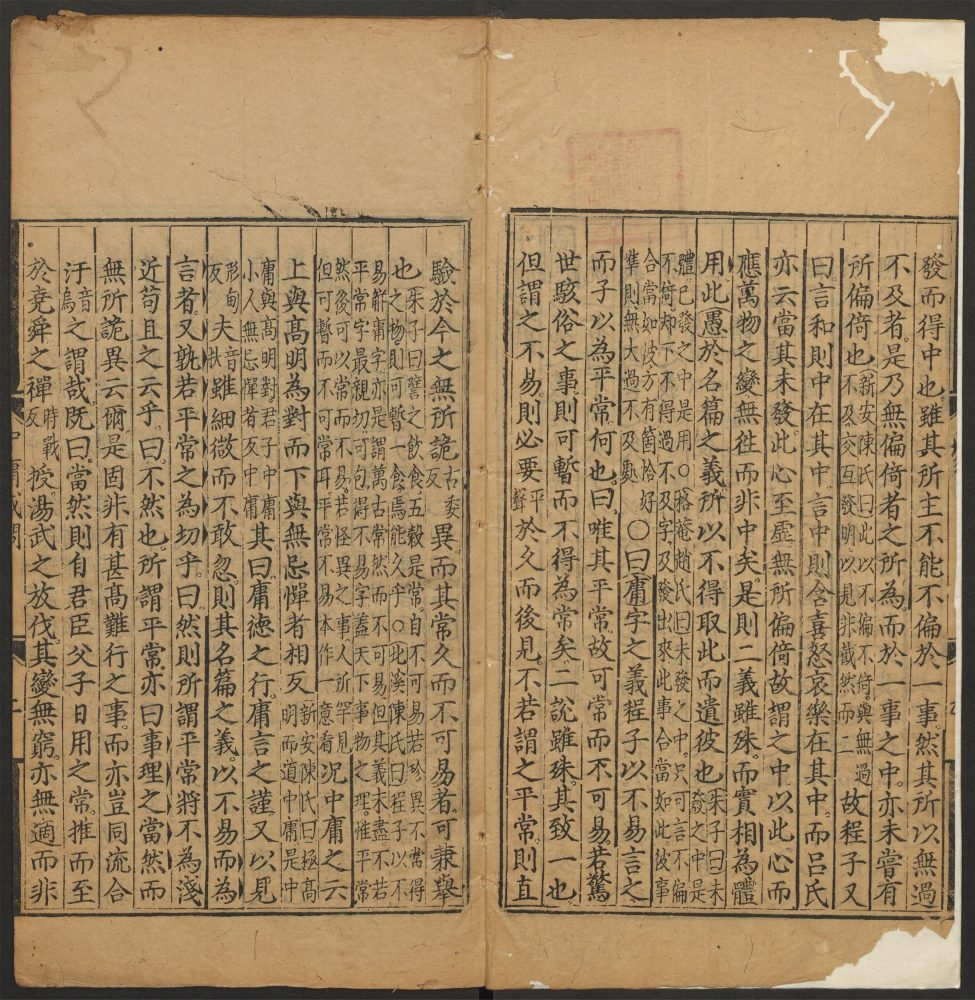 發而得中也雖其所主不能不偏於一事然其所以無過
不及者是乃無偏倚者之所為而於一事之中亦未嘗有
所偏倚也新安陳氏曰此以不偏不倚與無過不及交互發明以見非截然而二故程子又
曰言和則中在其中言中則含喜怒哀樂在其中而呂氏
亦云當其未發此心至虛無所偏倚故謂之中以此心而
應萬物之變無往而非中矣是則二義雖殊而實相為體
用此愚於名篇之義所以不得取此而遺彼也朱子曰未發之中是
體已發之中是用○格菴趙氏曰未發之中只可言不偏
不倚却下不得過不及字及發出來此事合當如此彼事
合當如彼方有箇恰好準則無大過不及處○曰庸字之義程子以不易言之
而子以為平常何也曰唯其平常故可常而不可易若驚
世駭俗之事則可暫而不得為常矣二說雖殊其致一也
但謂之不易則必要平聲於久而後見不若謂之平常則直
驗於今之無所詭古委反異而其常久而不可易者可兼舉
也朱子曰譬之飲食五穀是常自不可易若珍異不常得
之物則可暫一食焉能久乎○北溪陳氏曰程子以不
易解庸字亦是謂萬古常然而不可易但其義未盡不若
平常字最親切可包得不易字蓋天下事物之理惟平常
然後可以常而不易若怪異之事人所罕見
但可暫而不可常耳平常不易本作一意看況中庸之云
上與高明為對而下與無忌憚者相反新安陳氏曰極高明而道中庸是中
庸與高明對君子中庸小人無忌憚者反中庸其曰庸德之行庸言之謹又以見
形甸反夫音扶雖細微而不敢忽則其名篇之義以不易而為
言者又孰若平常之為切乎曰然則所謂平常將不為淺
近苟且之云乎曰不然也所謂平常亦曰事理之當然而
無所詭異云爾是固非有甚高難行之事而亦豈同流合
汙音烏之謂哉既曰當然則自君臣父子日用之常推而至
於堯舜之禪時戰反授湯武之放伐其變無窮亦無適而非